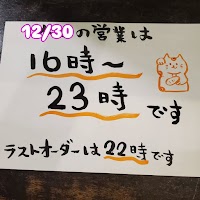 12/30の営業は
16時〜
23時です
ラストオーダーは22時です